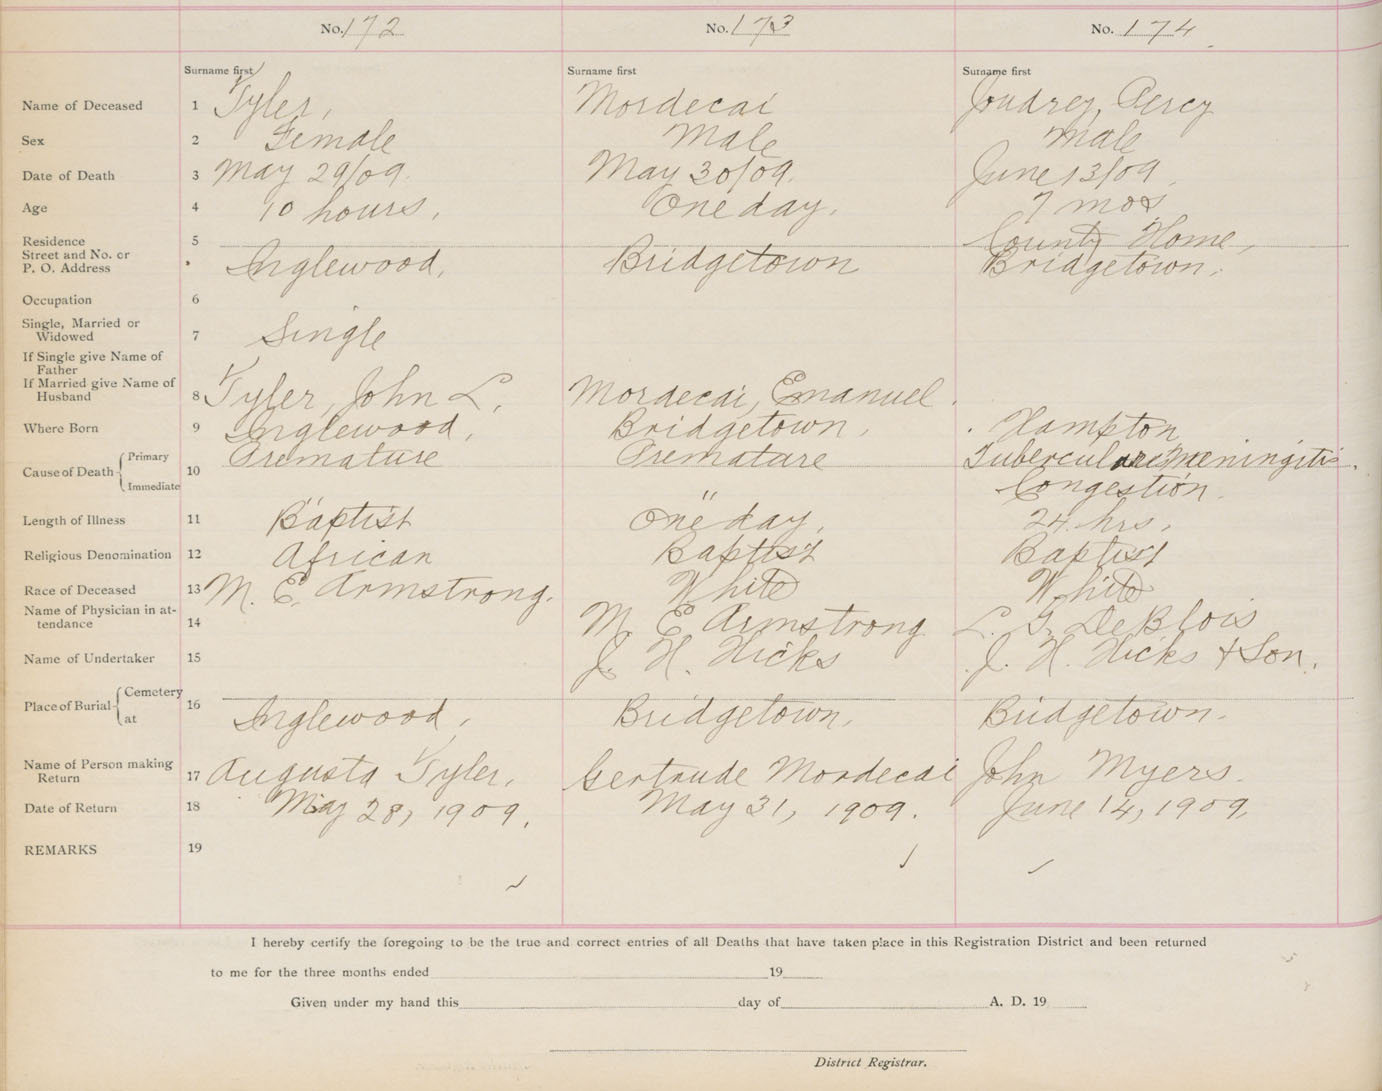 No. 172 No. 173 No. 174
Surname first Surname first Surname first
Name of Deceased 1 Tyler, Mordecai Joudrey, Percy
Sex 2 Female Male Male
Date of Death 3 May 29/09. May 30/09. June 13/09.
Age 4 10 hours, One day. 7 mos
Residence 5 County Home,
Street and No. or
P. O. Address Inglewood, Bridgetown Bridgetown.
Occupation 6
Single, Married or
Widowed 7 Single
If Single give Name of
Father
If Married give Name of
Husband 8 Tyler, John L. Mordecai, Emanuel.
Where Born 9 Inglewood, Bridgetown, Hampton
Cause of Death Primary 10 Premature Premature Tubercular Meningitis.
Immediate " " Congestion.
Length of Illness 11 Baptist One day, 24 hrs.
Religious Denomination 12 African Baptist Baptist
Race of Deceased 13 M. E. Armstrong. White White
Name of Physician in at-
tendance 14 M. E. Armstrong L. G. DeBlois
Name of Undertaker 15 J. H. Hicks J. H. Hicks & Son.
Place of Burial Cemetery 16
at Inglewood, Bridgetown, Bridgetown.
Name of Person making
Return 17 Augusta Tyler, Gertrude Mordecai John Myers.
Date of Return 18 May 28, 1909. May 31, 1909. June 14, 1909.
REMARKS 19
I hereby certify the foregoing to be the true and correct entries of all Deaths that have taken place in this Registration District and been returned
to me for the three months ended 19
Given under my hand this day of A. D. 19
District Registrar.